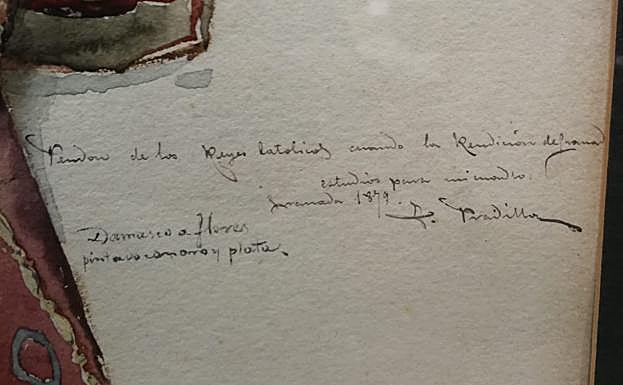 Pendon de los Reyes Catolicos cuando la Rendición de Granad
estudios para mi cuadro.
Granada 1879. F. Pradilla
Damasco a flores
pintado con oro y plata.